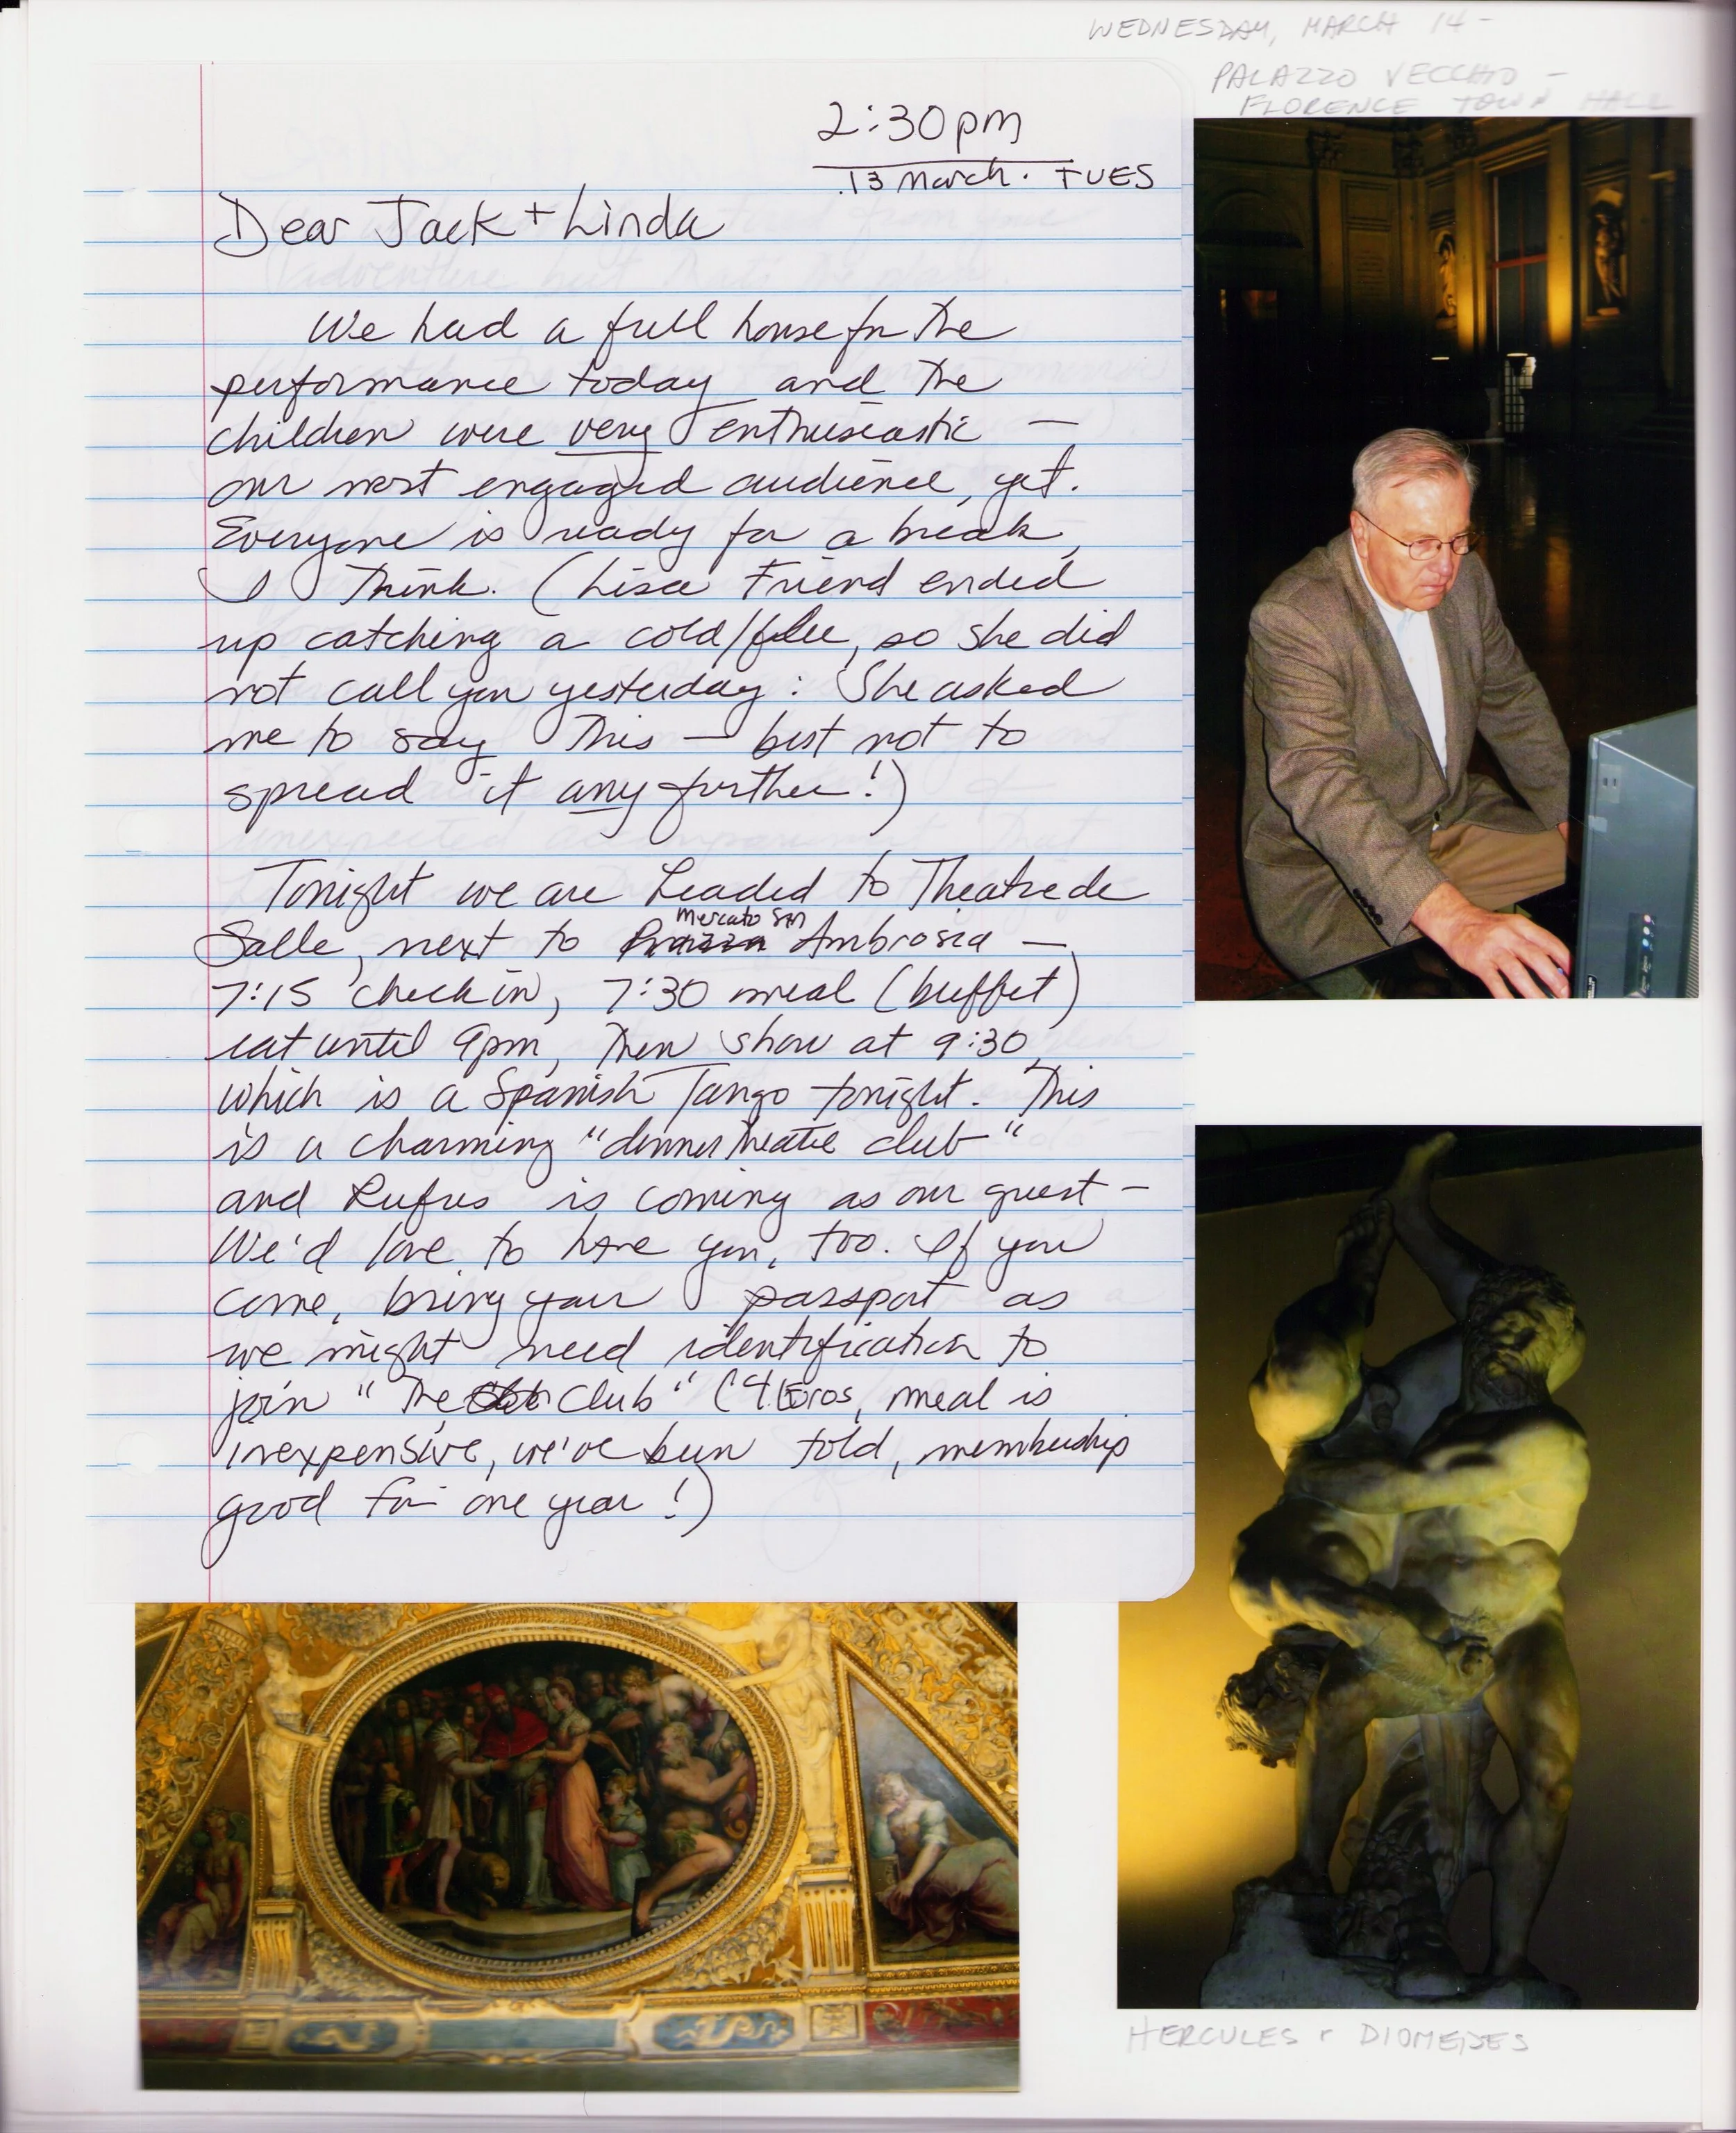 WEDNESDAY, MARCH 14 -
PALAZZO VECCHIO -
FLORENCE TOWN HALL
2:30pm
13 March. TUES
Dear Jack + Linda
We had a full house for the
performance today and the
children were very enthusiastic —
our most engaged audience, yet.
Everyone is ready for a break,
I think. (Lisa Friend ended
up catching a cold/flu, so she did
not call you yesterday: She asked
me to say this — best not to
spread it any further!)
Tonight we are headed to Theatre de
Salle, next to Mercato San Ambrosia —
7:15 check in, 7:30 meal (buffet)
eat until 9pm, then show at 9:30,
which is a Spanish Tango tonight. This
is a charming "dinner theatre club"
and Rufus is coming as our guest —
We'd love to have you, too. If you
come, bring your passport as
we might need identification to
join "The Club" (4 Euros, meal is
inexpensive, we've been told, membership
good for one year!)
HERCULES + DIOMEDES